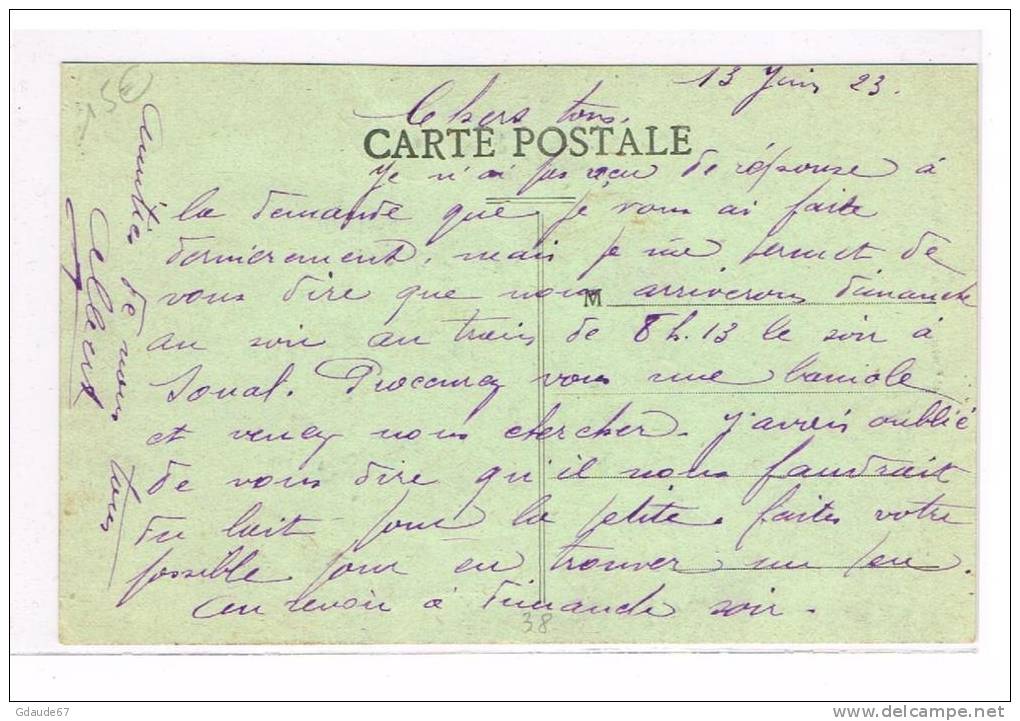 13 Juin 23.
Chers tous.
CARTE POSTALE
Je n'ai pas reçu de réponse à
la demande que je vous ai faite
dernièrement, mais je me permet de
vous dire que nous arriverons dimanche
M
au soir au train de 8 h. 13 le soir à
Procurez vous une bariole
et venez nous chercher. J'avais oublié
de vous dire qu'il nous faudrait
du lait pour la petite. faites votre
possible pour en trouver un peu.
Au revoir à dimanche soir.
Amitiés de nous tous
Albert
15€
38
Gdaude67
www.delcampe.net